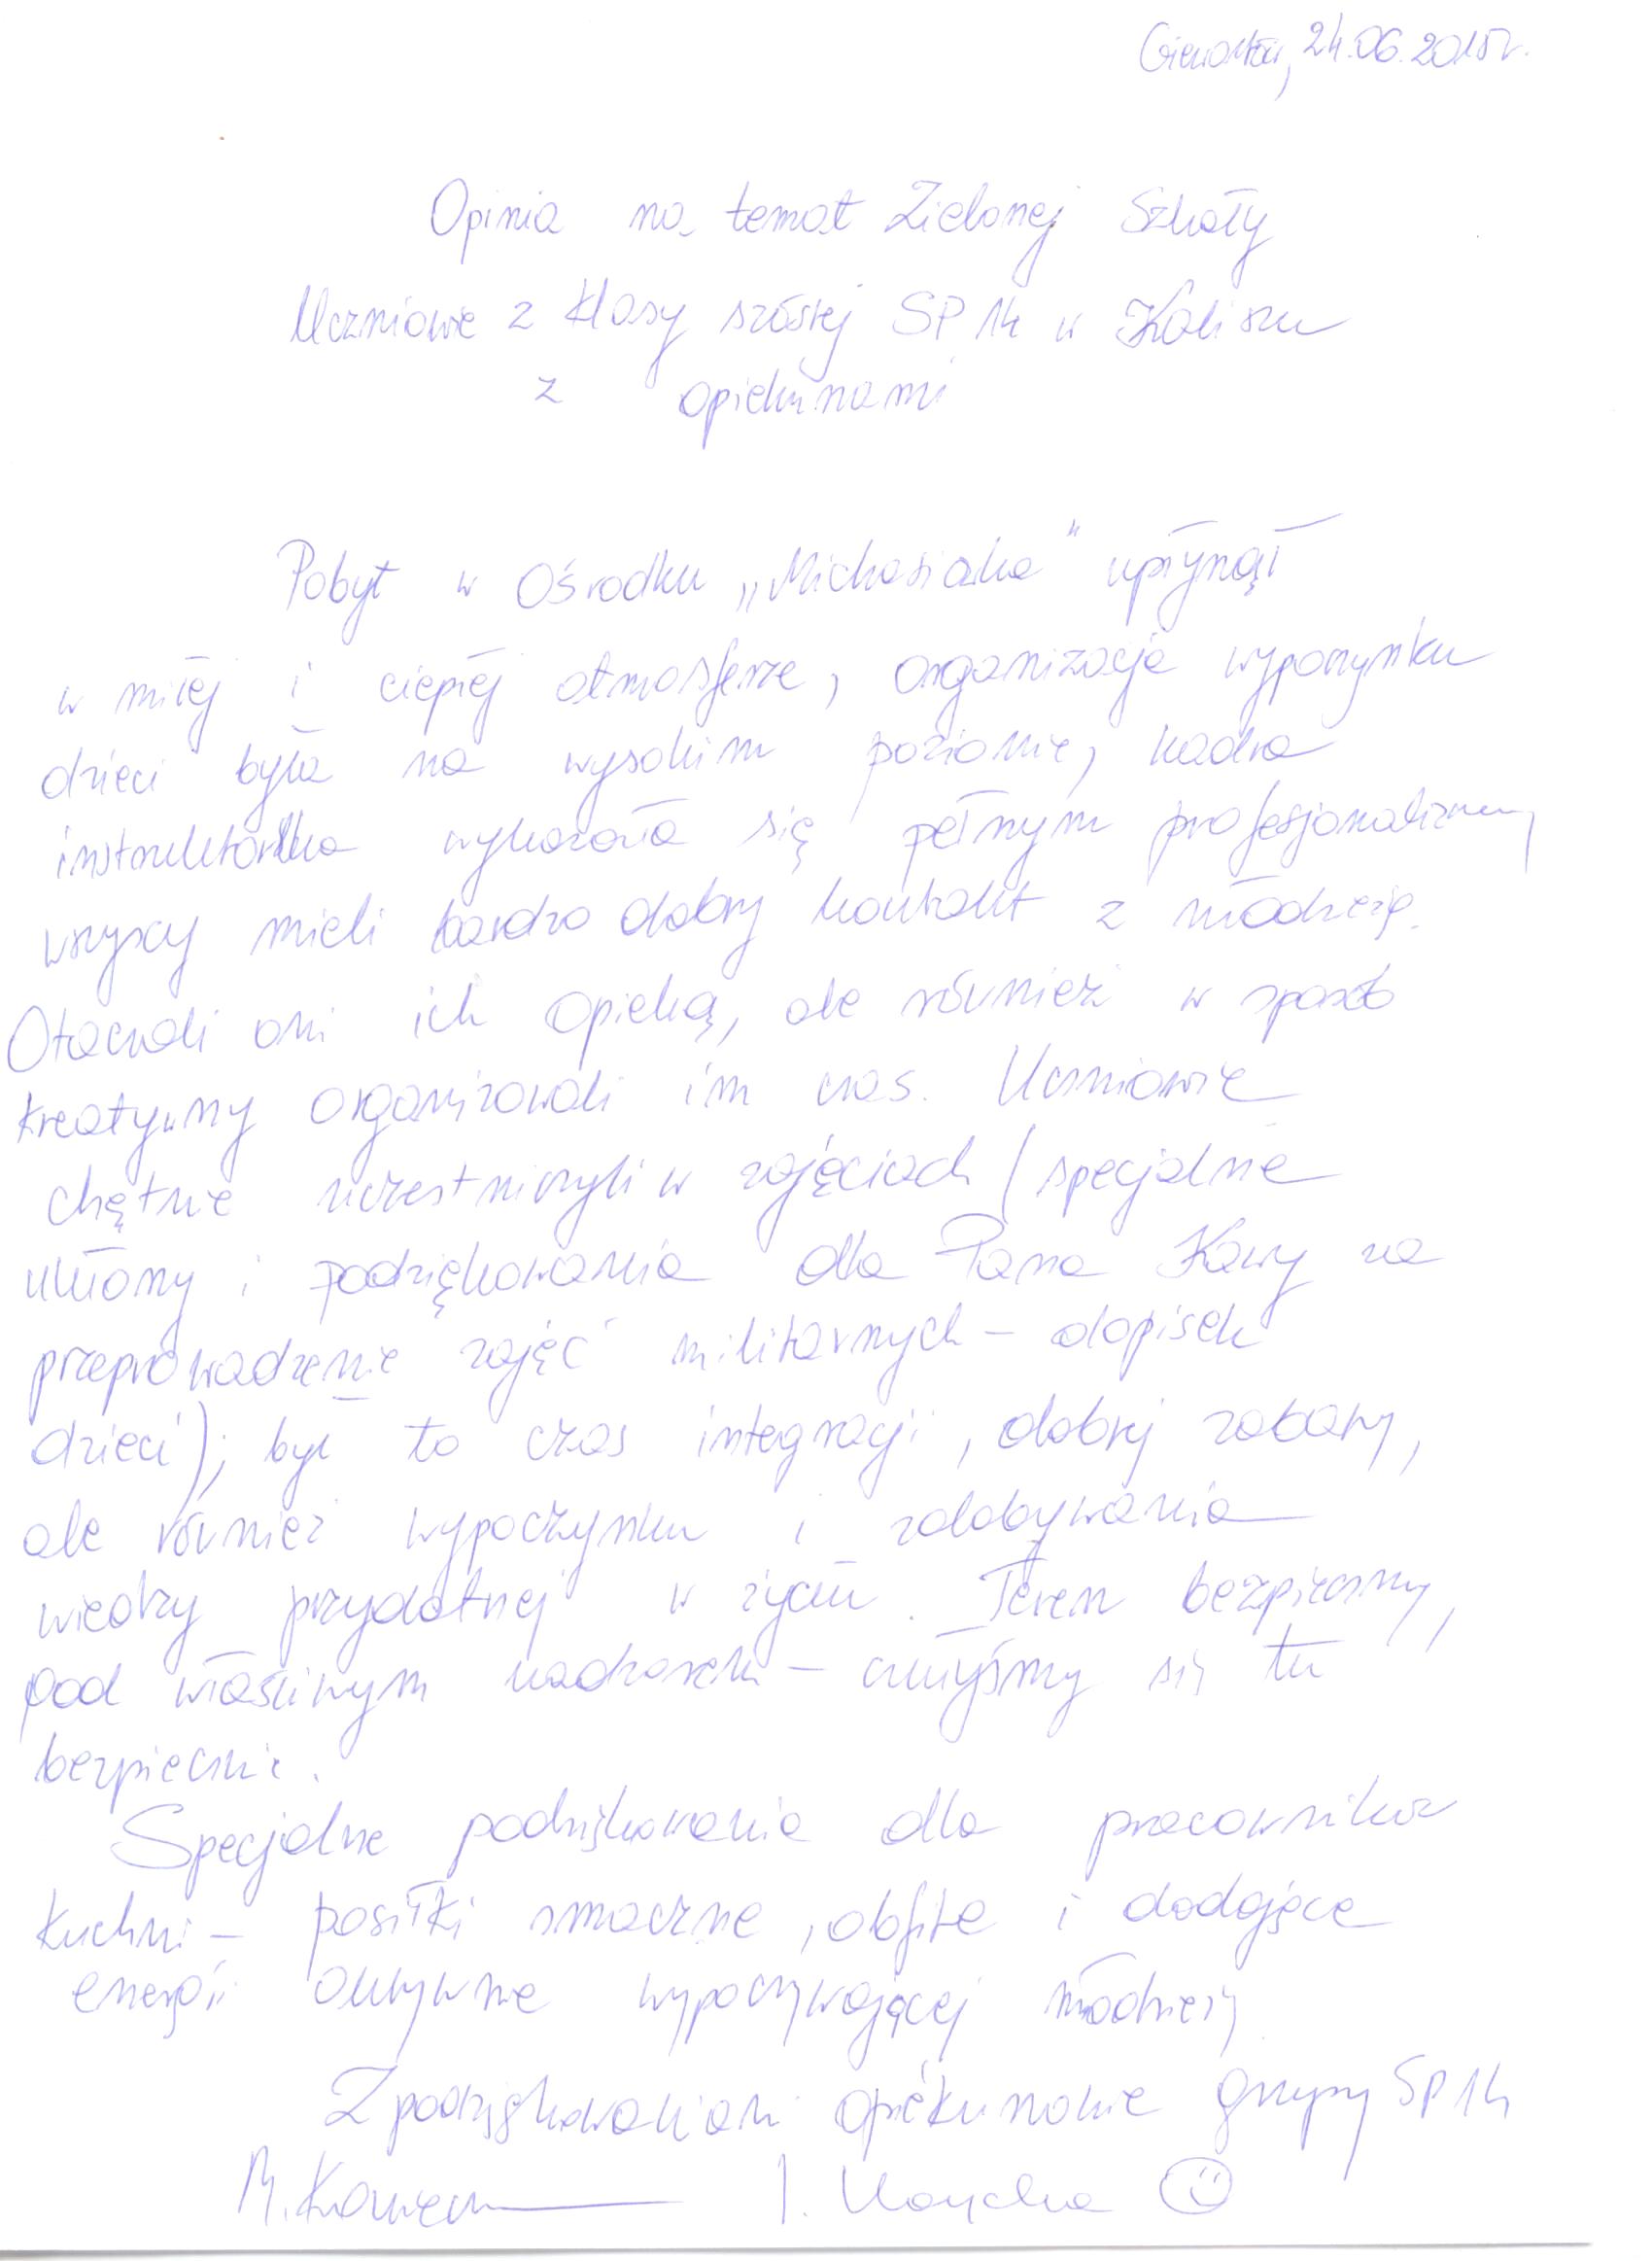 24.06.2015r.
Opinia na temat Zielonej Szkoły
Uczniowie z klasy szóstej SP 14 w Kaliszu
z opiekunami
Pobyt w Ośrodku „Michasiaka" upłynął
w miłej i ciepłej atmosferze, organizacja wypoczynku
dzieci była na wysokim poziomie, kadra
instruktorska wykazała się pełnym profesjonalizmem,
wszyscy mieli bardzo dobry kontakt z młodzieżą.
Otaczali oni ich opieką, ale również w sposób
kreatywny organizowali im czas. Uczniowie
chętnie uczestniczyli w zajęciach (specjalne
ukłony i podziękowania dla Pana Kawy za
przeprowadzenie zajęć militarnych - dopisek
dzieci); był to czas integracji, dobrej zabawy,
ale również wypoczynku i zdobywania
wiedzy przydatnej w życiu. Teren bezpieczny,
pod właściwym nadzorem - czuliśmy się tu
bezpiecznie.
Specjalne podziękowania dla pracowników
kuchni - posiłki smaczne, obfite i dodające
energii aktywnie wypoczywającej młodzieży
Z podziękowaniami opiekunowie grupy SP 14